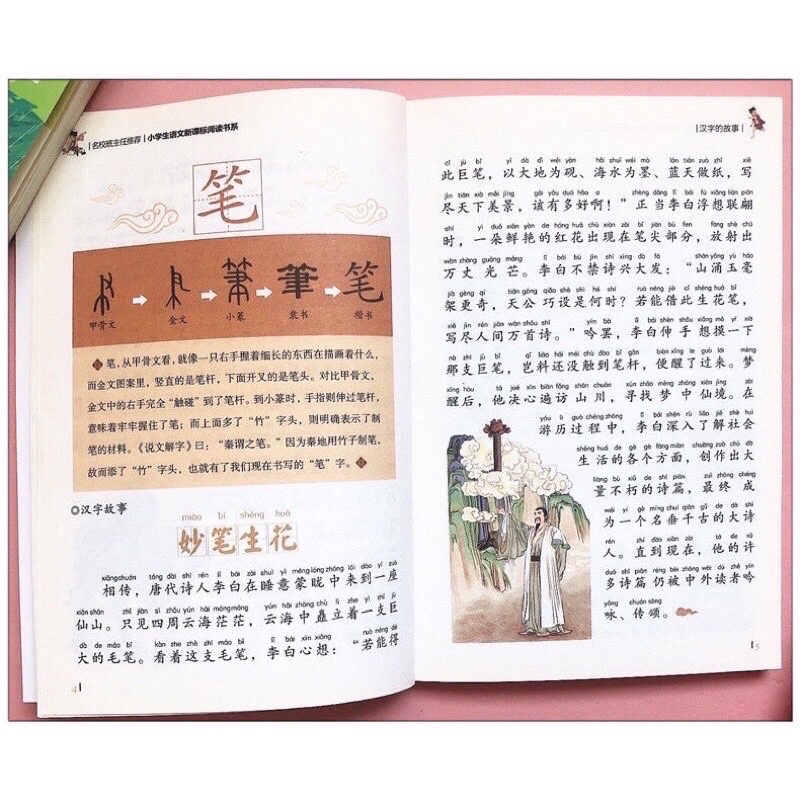 名校班主任推荐|小学生语文新课标阅读书系
笔
甲骨文 金文 小篆 隶书 楷书
笔，从甲骨文看，就像一只右手握着细长的东西在描画着什么，
而金文图案里，竖直的是笔杆，下面开叉的是笔头。对比甲骨文，
金文中的右手完全“触碰”到了笔杆。到小篆时，手指则伸过笔杆，
意味着牢牢握住了笔；而上面多了“竹”字头，则明确表示了制
笔的材料。《说文解字》曰：“秦谓之笔。”因为秦地用竹子制笔，
故而添了“竹”字头，也就有了我们现在书写的“笔”字。
汉字故事
miào bǐ shēng huā
妙笔生花
xiāngchuán táng dài shī rén lǐ bái zài shuì yì ménglóng zhōng lái dào yí zuò
相传，唐代诗人李白在睡意蒙眬中来到一座
xiān shān zhǐ jiàn sì zhōu yún hǎi mángmáng yún hǎi zhōng chù lì zhe yì zhī jù
仙山。只见四周云海茫茫，云海中矗立着一支巨
dà de máo bǐ kàn zhe zhè zhī máo bǐ lǐ bái xīn xiǎng ruò néng dé
大的毛笔。看着这支毛笔，李白心想：“若能得
4
|汉字的故事|
cǐ jù bǐ yǐ dà dì wéi yàn hǎi shuǐ wéi mò lán tiān zuò zhǐ xiě
此巨笔，以大地为砚、海水为墨、蓝天做纸，写
jìn tiān xià měi jǐng gāi yǒu duō hǎo a zhèng dāng lǐ bái fú xiǎng lián piān
尽天下美景，该有多好啊！”正当李白浮想联翩
shí yì duǒ xiān yàn de hóng huā chū xiàn zài bǐ jiān bù fen fàng shè chū
时，一朵鲜艳的红花出现在笔尖部分，放射出
wàn zhàng guāng máng lǐ bái bù jīn shī xìng dà fā shān yǒng yù háo
万丈光芒。李白不禁诗兴大发：“山涌玉毫
jià gèng qí tiān gōng qiǎo shè shì hé shí ruò néng jiè cǐ shēng huā bǐ
架更奇，天公巧设是何时？若能借此生花笔，
xiě jìn rén jiān wàn shǒu shī yín bà lǐ bái shēn shǒu xiǎng mō yí xià
写尽人间万首诗。”吟罢，李白伸手想摸一下
nà zhī jù bǐ qǐ liào hái méi chù dào bǐ gǎn biàn xǐng le guò lái mèng
那支巨笔，岂料还没触到笔杆，便醒了过来。梦
xǐng hòu tā jué xīn biàn fǎng shān chuān xún zhǎo mèng zhōng xiān jìng zài
醒后，他决心遍访山川，寻找梦中仙境。在
yóu lì guò chéng zhōng lǐ bái shēn rù liǎo jiě shè huì
游历过程中，李白深入了解社会
shēng huó de gè gè fāng miàn chuàng zuò chū dà
生活的各个方面，创作出大
liàng bù xiǔ de shī piān zuì zhōng chéng
量不朽的诗篇，最终成
wéi yí gè míng chuí qiān gǔ de dà shī
为一个名垂千古的大诗
rén zhí dào xiàn zài tā de xǔ
人。直到现在，他的许
duō shī piān réng bèi zhōng wài dú zhě yín
多诗篇仍被中外读者吟
yǒng chuán sòng
咏、传颂。
5